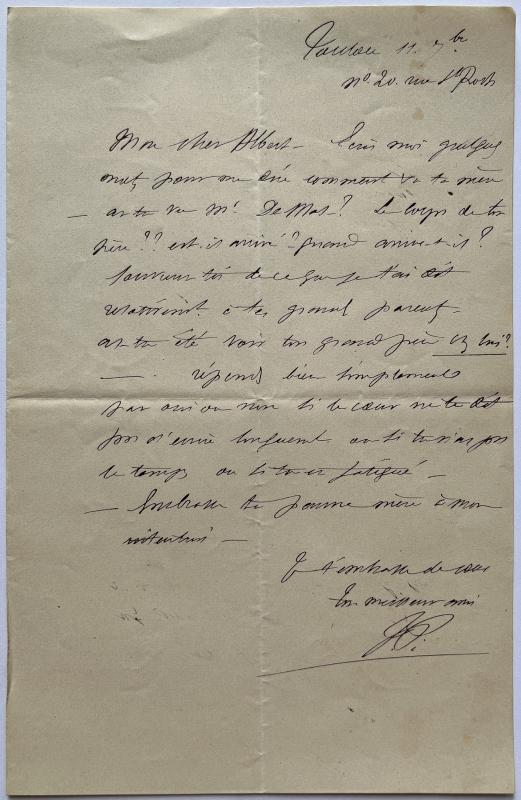 11. 7bre
n° 20. rue St Roch
Mon cher Albert – Ecris moi quelques
mots pour me dire comment va ta mère
– as tu vu Mr. De Mas? Le corps de ton
père?? est-il arrivé? quand arrive-t-il?
Souviens toi de ce que je t'ai dit
relativement à tes grands parents –
as tu été voir ton grand père chez lui?
– . réponds bien simplement
par oui ou non si le cœur ne te dit
pas d'écrire longuement ou si tu n'as pas
le temps ou si tu es fatigué –
– Embrasse ta pauvre mère à mon
intention –
Je t'embrasse de cœur
Ton meilleur ami